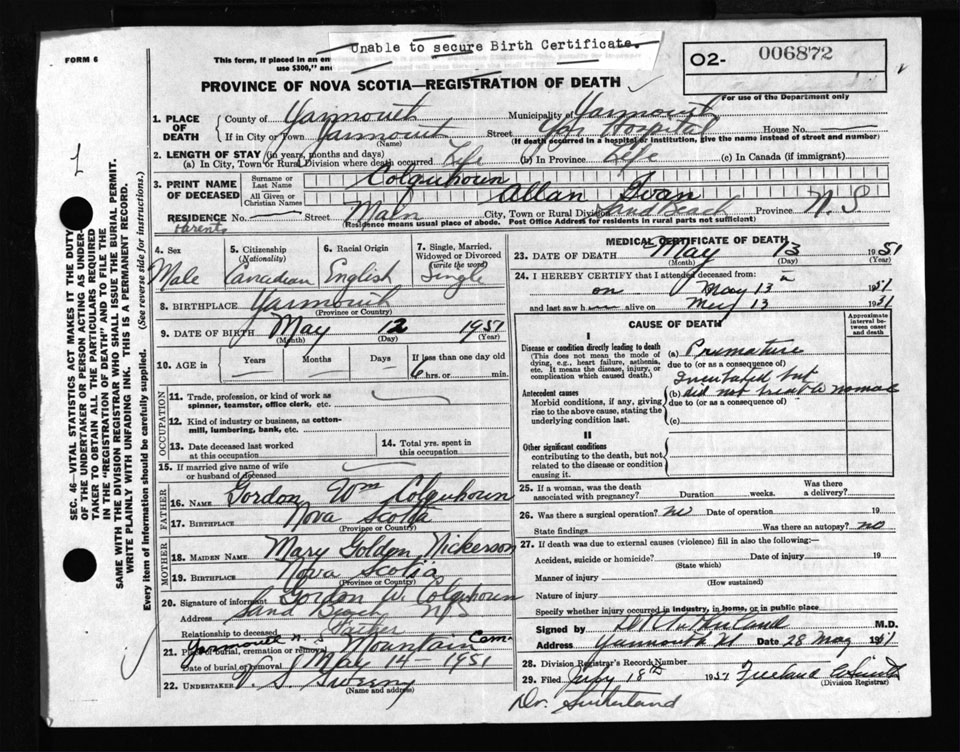 Unable to secure Birth Certificate.
FORM 6
This form, if placed in an en
use $300," and
O2- 006872
For use of the Department only
PROVINCE OF NOVA SCOTIA—REGISTRATION OF DEATH
1. PLACE OF DEATH
County of Yarmouth Municipality of Yarmouth
If in City or Town Yarmouth Street Hospital House No.
(Name) (If death occurred in a hospital or institution, give the name instead of street and number)
2. LENGTH OF STAY (in years, months and days)
(a) In City, Town or Rural Division where death occurred Life (b) In Province Life (c) In Canada (if immigrant)
3. PRINT NAME OF DECEASED
Surname or Last Name Colquhoun
All Given or Christian Names Allan Ivan
RESIDENCE No. Street Main City, Town or Rural Division Sand Beach Province N.S
Parents (Residence means usual place of abode. Post Office Address for residents in rural parts not sufficient)
4. Sex Male
5. Citizenship (Nationality) Canadian
6. Racial Origin English
7. Single, Married, Widowed or Divorced (write the word) Single
8. BIRTHPLACE Yarmouth
(Province or Country)
9. DATE OF BIRTH May 12 1951
(Month) (Day) (Year)
10. AGE in Years Months Days If less than one day old
6 hrs. or min.
OCCUPATION
11. Trade, profession, or kind of work as spinner, teamster, office clerk, etc.
12. Kind of industry or business, as cotton-mill, lumbering, bank, etc.
13. Date deceased last worked at this occupation
14. Total yrs. spent in this occupation
15. If married give name of wife or husband of deceased
FATHER
16. NAME Gordon Wm Colquhoun
17. BIRTHPLACE Nova Scotia
(Province or Country)
MOTHER
18. MAIDEN NAME Mary Golden Nickerson
19. BIRTHPLACE Nova Scotia
(Province or Country)
20. Signature of informant Gordon W. Colquhoun
Address Sand Beach NS
Relationship to deceased Father
Yarmouth N.S Mountain Cem-
21. Place of burial, cremation or removal
Date of burial or removal May 14 - 1951
22. UNDERTAKER V. S. Sweeny
(Name and address)
MEDICAL CERTIFICATE OF DEATH
23. DATE OF DEATH May 13 1951
(Month) (Day) (Year)
24. I HEREBY CERTIFY that I attended deceased from:
on May 13 1951
and last saw h alive on May 13 1951
CAUSE OF DEATH
Approximate interval between onset and death
I
Disease or condition directly leading to death
(This does not mean the mode of dying, e.g., heart failure, asthenia, etc. It means the disease, injury, or complication which caused death.)
(a) Premature
due to (or as a consequence of)
Incubated but
Antecedent causes
Morbid conditions, if any, giving rise to the above cause, stating the underlying condition last.
(b) did not
due to (or as a consequence of)
(c)
II
Other significant conditions
contributing to the death, but not related to the disease or condition causing it.
25. If a woman, was the death associated with pregnancy? Duration weeks. Was there a delivery?
26. Was there a surgical operation? no Date of operation 19
State findings Was there an autopsy? no
27. If death was due to external causes (violence) fill in also the following:—
Accident, suicide or homicide? Date of injury 19
(State which)
Manner of injury
(How sustained)
Nature of injury
Specify whether injury occurred in industry, in home, or in public place
Signed by Sutherland M.D.
Address Yarmouth Date 28 May 1951
28. Division Registrar's Record Number
29. Filed July 18th 1951
(Division Registrar)
Dr. Sutherland
SEC. 46—VITAL STATISTICS ACT MAKES IT THE DUTY OF THE UNDERTAKER OR PERSON ACTING AS UNDERTAKER TO OBTAIN ALL THE PARTICULARS REQUIRED IN THE "REGISTRATION OF DEATH" AND TO FILE THE SAME WITH THE DIVISION REGISTRAR WHO SHALL ISSUE THE BURIAL PERMIT.
WRITE PLAINLY WITH UNFADING INK. THIS IS A PERMANENT RECORD.
Every item of information should be carefully supplied. (See reverse side for instructions.)